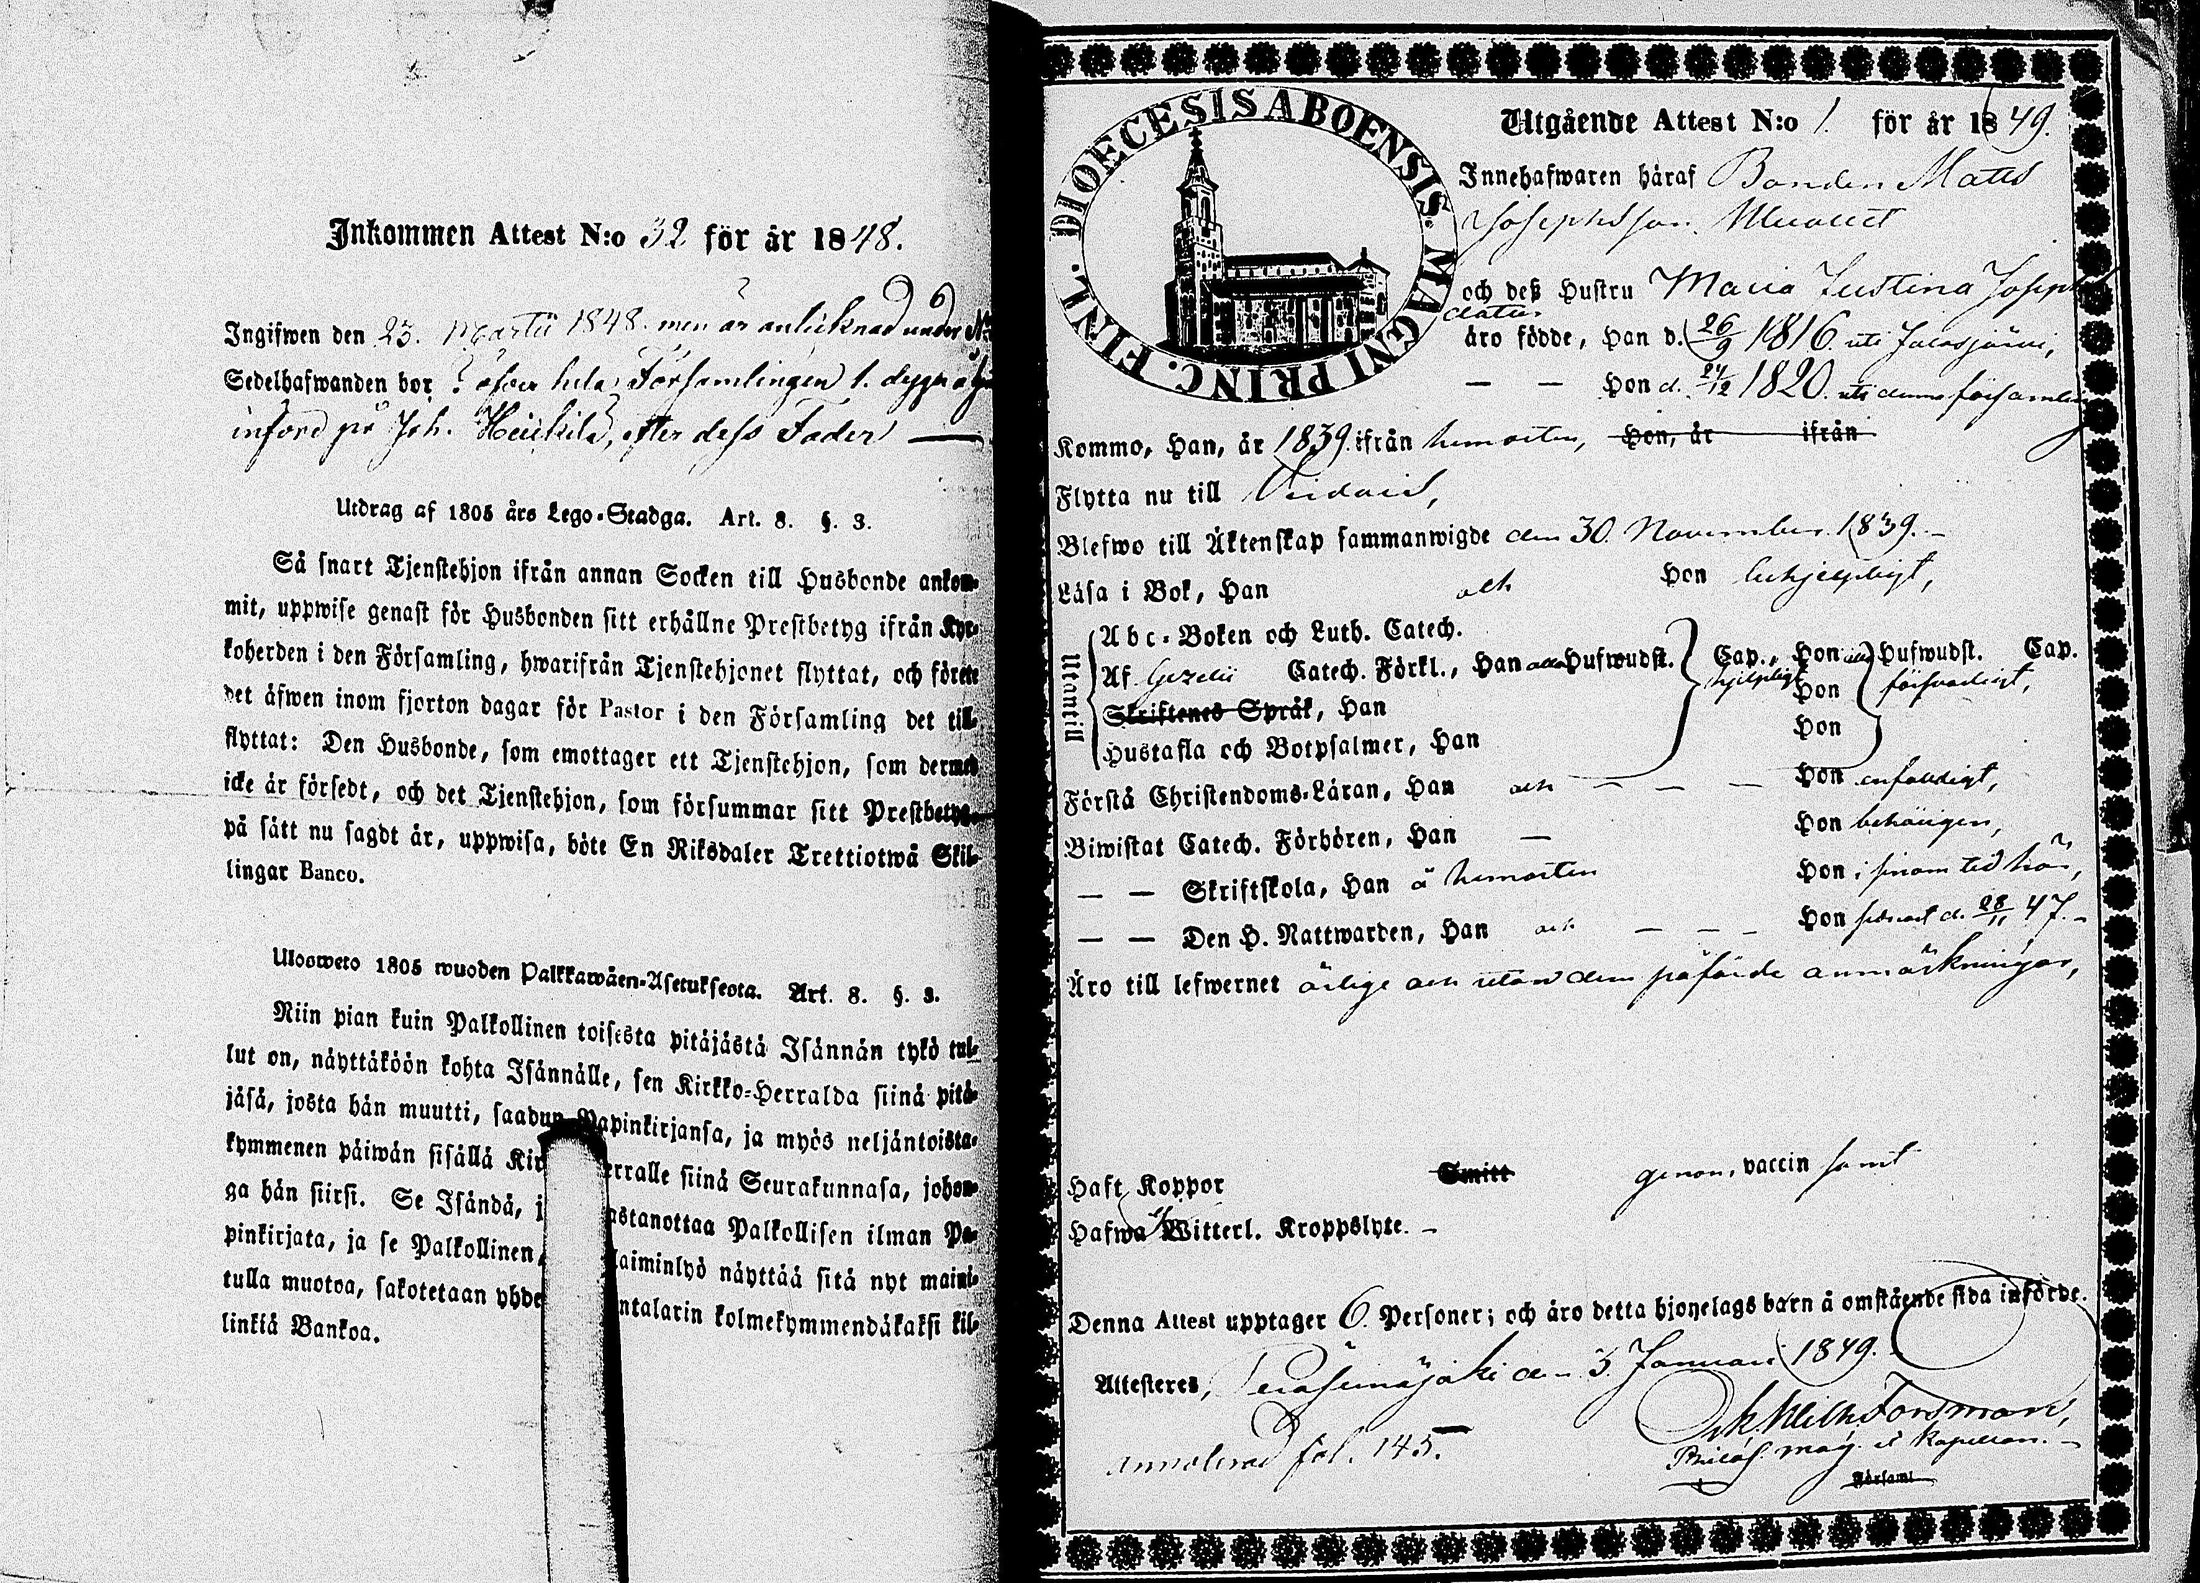 Inkommen Attest N:o 32 för år 1848.
Ingifwen den 23. Martii 1848. men är antecknad under N:
Sedelhafwanden bor öfver hela Församlingen 1. dygn
införd på Joh. Heikkilä, efter dess Fader
Utdrag af 1805 års Lego-Stadga. Art. 8. §. 3.
Så snart Tjenstehjon ifrån annan Socken till Husbonde ankom-
mit, uppwise genast för Husbonden sitt erhållne Prestbetyg ifrån Kyr-
koherden i den Församling, hwarifrån Tjenstehjonet flyttat, och förete
det äfwen inom fjorton dagar för Pastor i den Församling det till-
flyttat: Den Husbonde, som emottager ett Tjenstehjon, som dermed
icke är försedt, och det Tjenstehjon, som försummar sitt Prestbetyg-
på sätt nu sagdt är, uppwisa, böte En Riksdaler Trettiotwå Skil-
lingar Banco.
Ulosweto 1805 wuoden Palkkawäen-Asetuksesta. Art. 8. §. 3.
Niin pian kuin Palkollinen toisesta pitäjästä Isännän tykö tul-
lut on, näyttäköön kohta Isännälle, sen Kirkko-Herralda siinä pitä-
jäsä, josta hän muutti, saadun Papinkirjansa, ja myös neljäntoista-
kymmenen päiwän sisällä Kir erralle siinä Seurakunnasa, johon-
ga hän siirsi. Se Isändä, j astanottaa Palkollisen ilman Pa-
pinkirjata, ja se Palkollinen, laiminlyö näyttää sitä nyt maini-
tulla muotoa, sakotetaan yhde ntalarin kolmekymmendäkaksi kil-
linkiä Bankoa.
DIOECESIS ABOENSIS. MAGNI PRINC. FINL.
Utgående Attest N:o 1. för år 1849.
Innehafwaren häraf Bonden Matts
Josephsson
och deß Hustru Maria Justina Joseph
dater
äro födde, Han d. 26/9 1816. uti Jalasjärvi,
— — Hon d. 24/12 1820. uti denna församling
Kommo, Han, år 1839. ifrån hemorten, Hon, år ifrån
Flytta nu till Virdois,
Blefwo till Äktenskap sammanwigde den 30. November 1839. –
Läsa i Bok, Han och Hon behjelpligt,
Utantill
Abc-Boken och Luth. Catech.
Af Gezelii Catech. Förkl., Han alla Hufwudst. Cap., Hon alla Hufwudst. Cap.
hjelpligt försvarligt,
Skriftenes Språk, Han Hon
Hustafla och Botpsalmer, Han Hon
Förstå Christendoms-Läran, Han och — — — Hon enfaldigt,
Biwistat Catech. Förhören, Han — Hon behörigen,
— — Skriftskola, Han å hemorten Hon i sinom tid här,
— — Den H. Nattwarden, Han och — — — Hon senast d. 28/11 47. –
Äro till lefwernet ärlige och utan dem påförde anmärkningar,
Haft Koppor Smitt genom vaccin samt
Hafwa ej Witterl. Kroppslyte. –
Denna Attest upptager 6. Personer; och äro detta hjonelags barn å omstående sida införde.
Attesteres, Peräseinäjoki den 3. Januari 1849.
Forsman,
Philos. mag. et kapellan. –
Annoterad fol. 145.
Församl